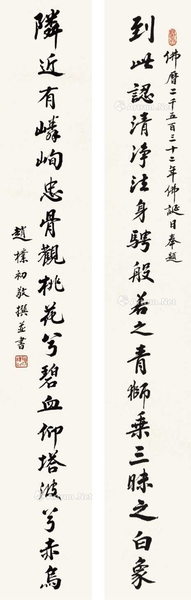 佛曆二千五百三十二年佛誕日奉題
到此認清淨法身騁般若之青獅乘三昧之白象
隣近有嶙峋忠骨觀桃花兮碧血仰塔波兮赤烏
趙樸初敬撰並書